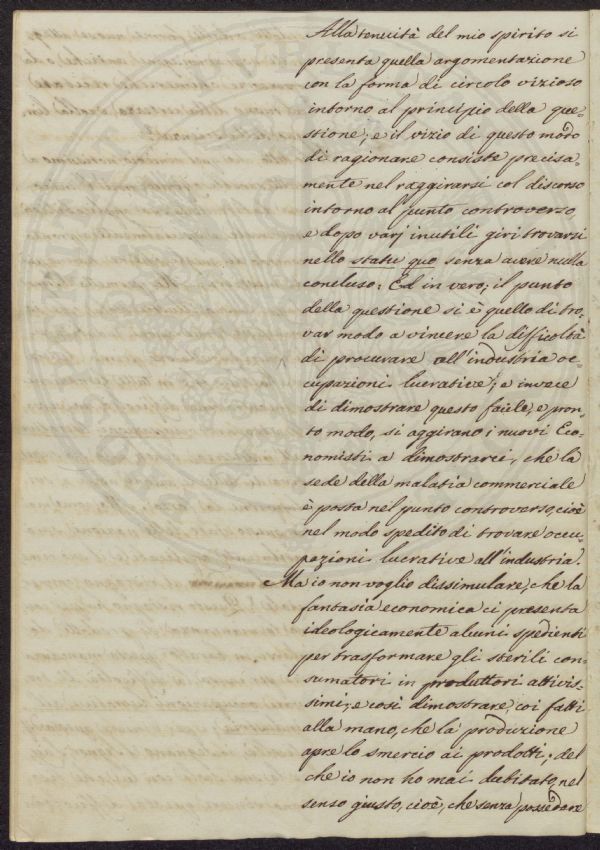 Alla tenuità del mio spirito si
presenta quella argomentazione
con la forma di circolo vizioso
intorno al principio della que=
stione; e il vizio di questo modo
di ragionare consiste precisa=
mente nel raggirarsi col discorso
intorno al punto controverso,
e dopo varj inutili giri trovarsi
nello statu quo senza avere nulla
concluso: Ed in vero, il punto
della questione si è quello di tro,
var modo a vincere la difficoltà
di procurare all'industria oc=
cupazioni lucrative; e invece
di dimostrare questo facile, e pron=
to modo, si aggirano i nuovi Eco=
nomisti a dimostrarci, che la
sede della malatia commerciale
è posta nel punto controverso, cioè
nel modo spedito di trovare occu=
pazioni lucrative all'industria.
Ma io non voglio dissimulare, che la
fantasia economica ci presenta
ideologicamente alcuni spedienti
per trasformare gli sterili con=
sumatori in produttori attivis=
simi; e così dimostrare, coi fatti
alla mano, che la produzione
apre lo smercio ai prodotti; del
che io non ho mai dubitato, nel
senso giusto, cioè, che senza possedere